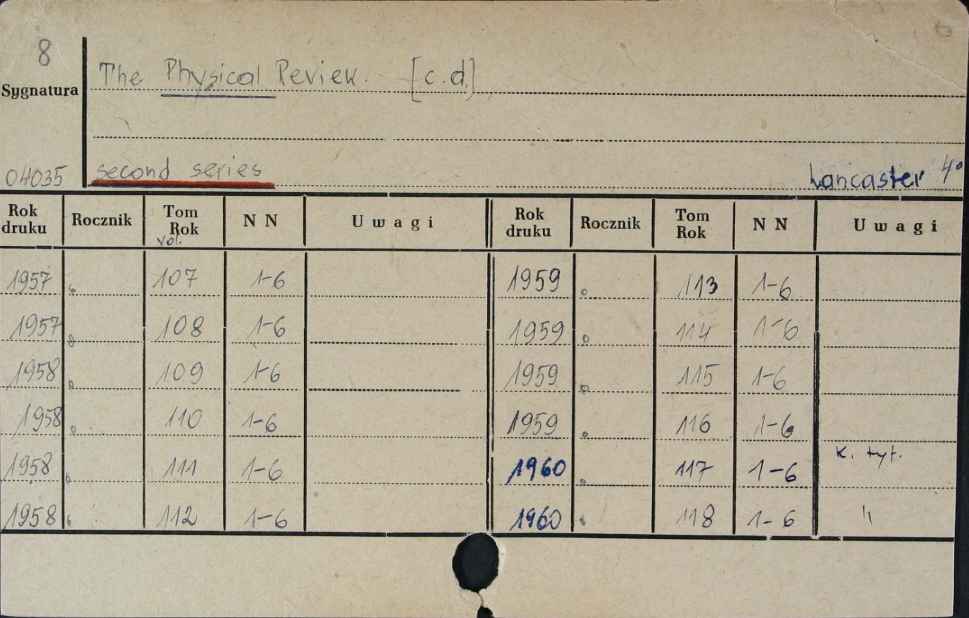 8
Sygnatura
The Physical Review. [c.d.]
04035
second series
Lancaster 4°
Rok druku Rocznik Tom Rok vol. N N Uwagi Rok druku Rocznik Tom Rok N N Uwagi
1957 107 1-6 1959 113 1-6
1957 108 1-6 1959 114 1-6
1958 109 1-6 1959 115 1-6
1958 110 1-6 1959 116 1-6
1958 111 1-6 1960 117 1-6 K. tyt.
1958 112 1-6 1960 118 1-6 "